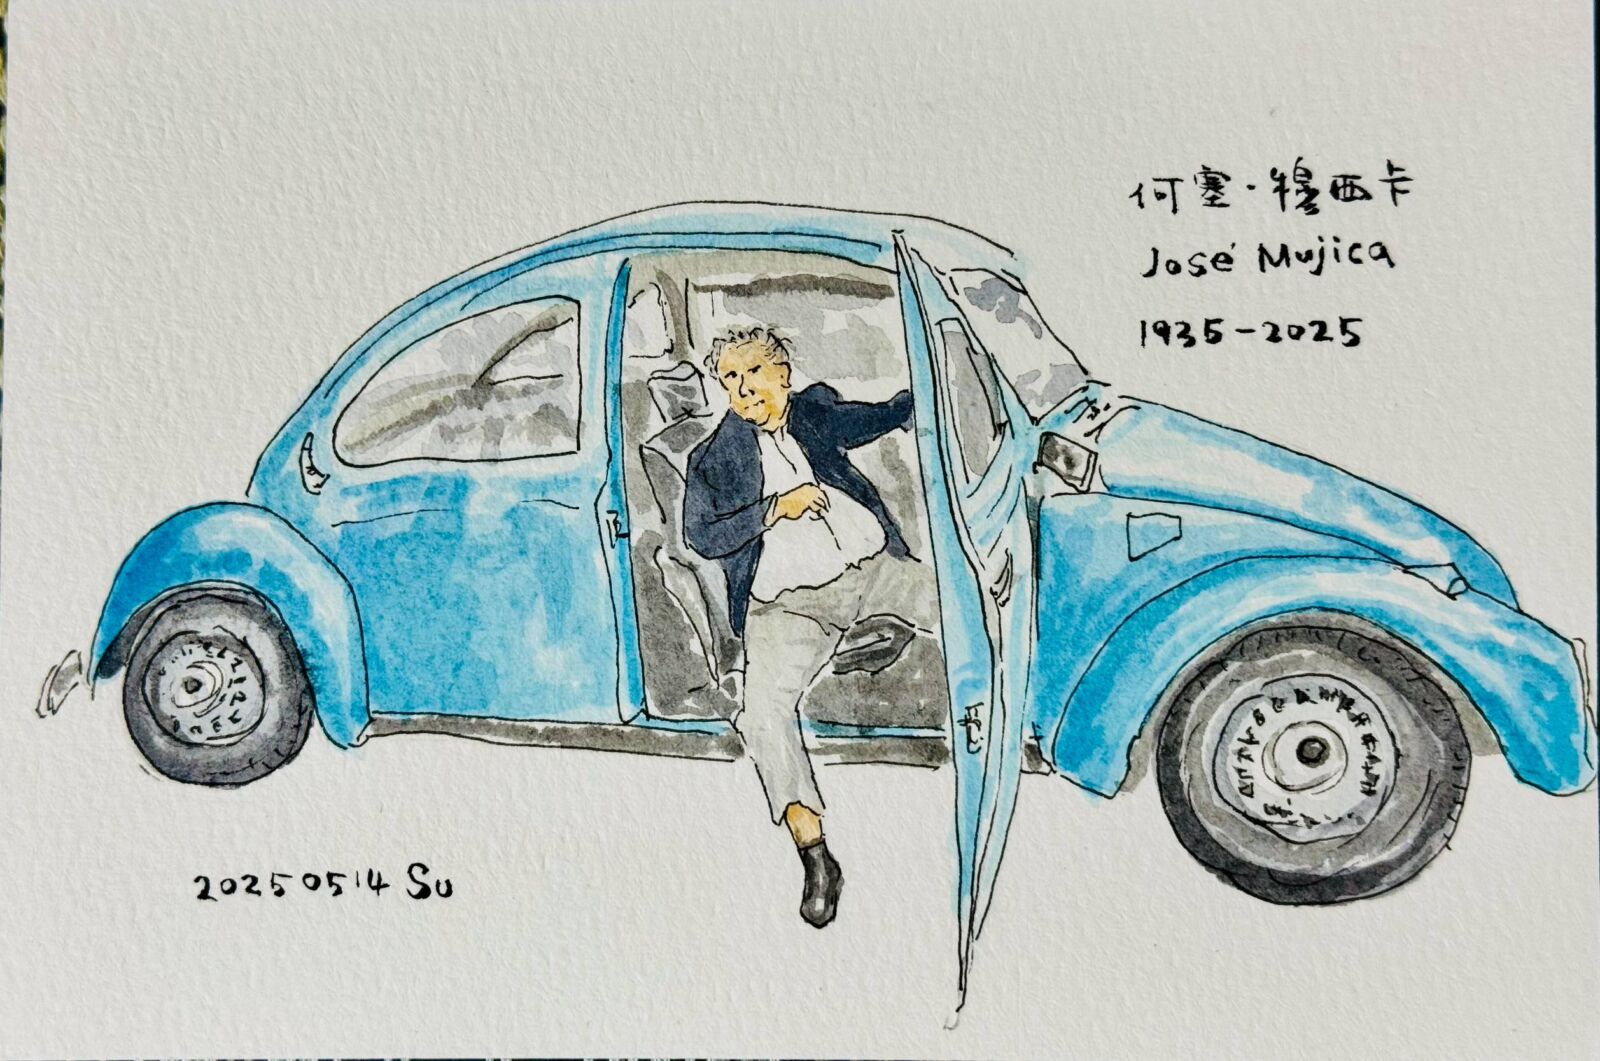 何塞·穆西卡
José Mujica
1935-2025
20250514 Su